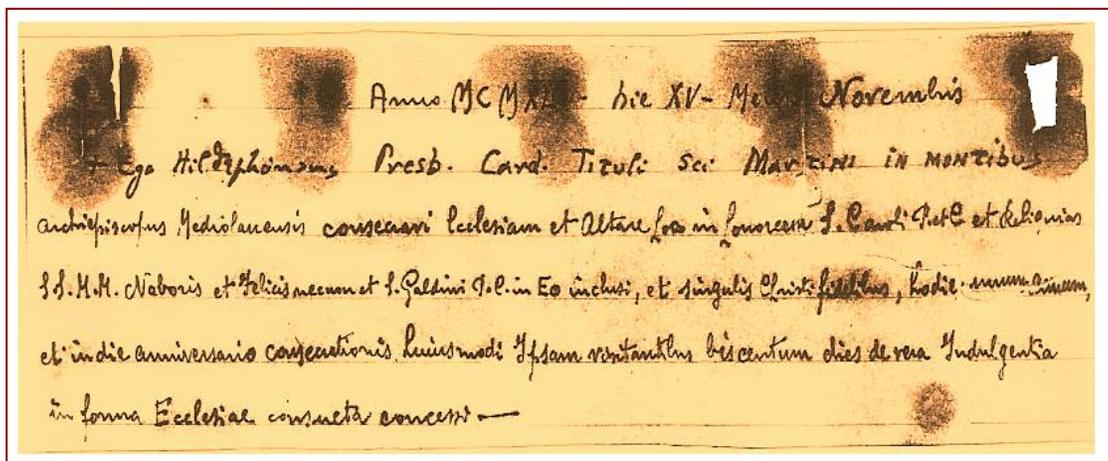 Anno - die XV - Novembris
+ Ego Hildephonsus Presb. Card. Tituli Sci Martini in montibus
archiepiscopus Mediolanensis consecravi Ecclesiam et Altare hoc in honorem S. Caroli P. et C. et Reliquias
S.S. M.M. Naboris et Felicis necnon et S. Galdini P.C. in Eo inclusi, et singulis Christifidelibus, hodie unum annum,
et in die anniversario consecrationis huiusmodi Ipsam visitantibus biscentum dies de vera Indulgentia
in forma Ecclesiae consueta concessi —